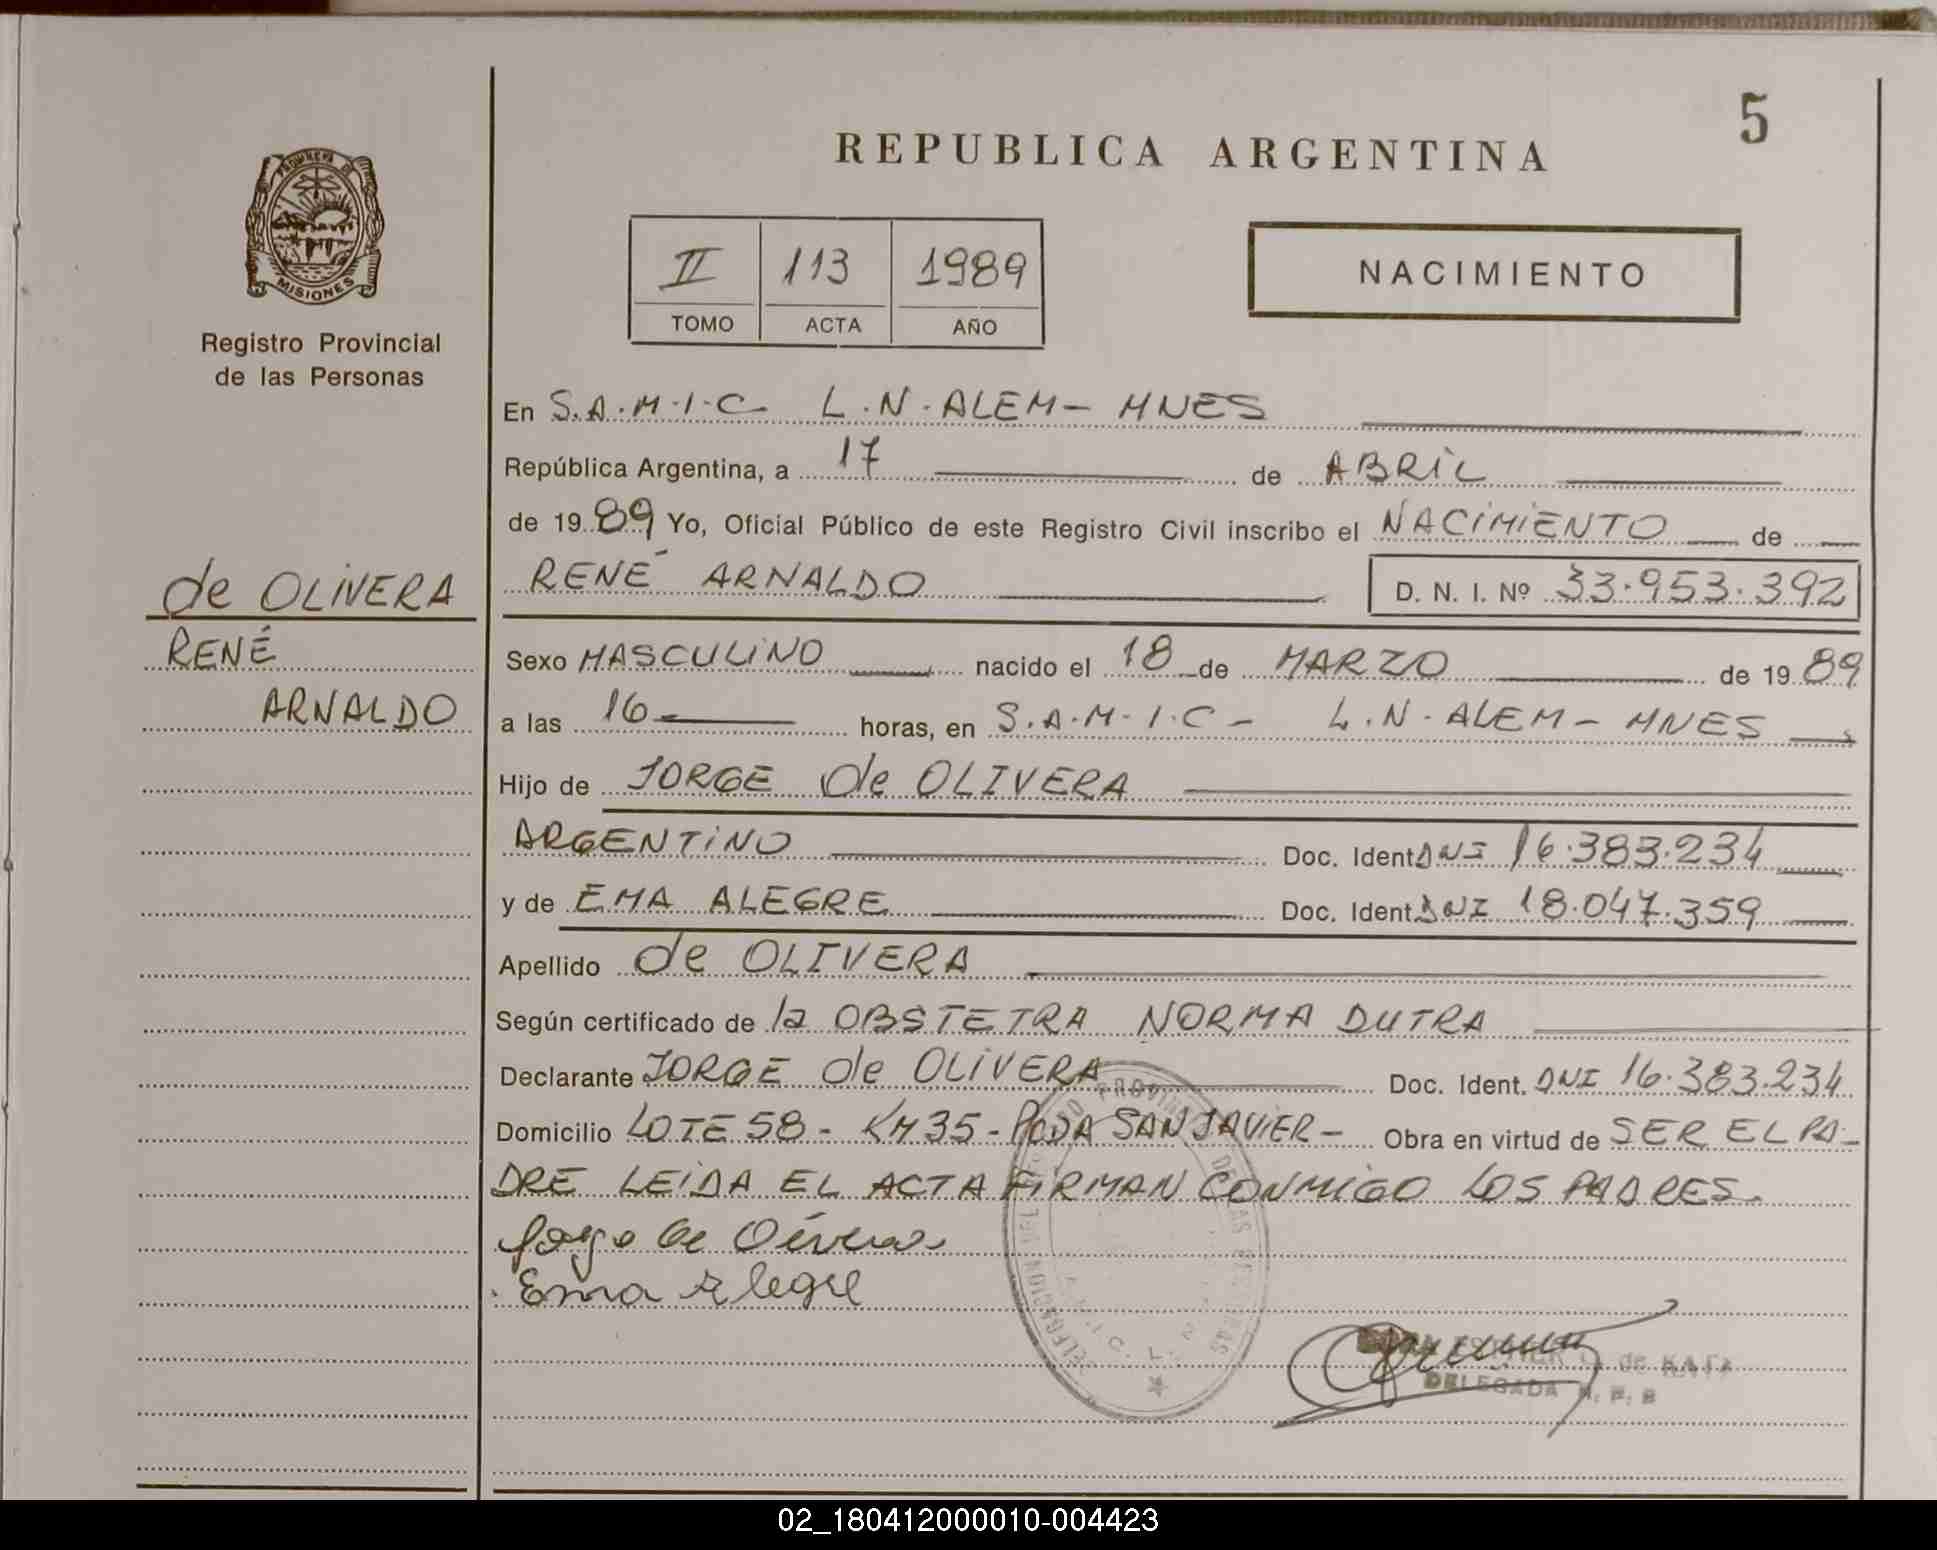 5
REPUBLICA ARGENTINA
PROVINCIA DE
MISIONES
Registro Provincial
de las Personas
II 113 1989
TOMO ACTA AÑO
NACIMIENTO
En S.A.M.I.C. L.N.ALEM- MNES
República Argentina, a 17 de ABRIL
de 1989 Yo, Oficial Público de este Registro Civil inscribo el NACIMIENTO de
de OLIVERA
RENÉ
ARNALDO
RENÉ ARNALDO D. N. I. Nº 33.953.392
Sexo MASCULINO nacido el 18 de MARZO de 1989
a las 16 horas, en S.A.M.I.C - L.N.ALEM- MNES
Hijo de JORGE de OLIVERA
ARGENTINO Doc. Ident. DNI 16.383.234
y de EMA ALEGRE Doc. Ident. DNI 18.047.359
Apellido de OLIVERA
Según certificado de la OBSTETRA NORMA DUTRA
Declarante JORGE de OLIVERA Doc. Ident. DNI 16.383.234
Domicilio LOTE 58 - KM35 - PCDA SAN JAVIER - Obra en virtud de SER EL PA-
DRE LEIDA EL ACTA FIRMAN CONMIGO LOS PADRES.
Jorge de Olivera
Ema Alegre
de KATZ
DELEGADA R. P. P
02_180412000010-004423